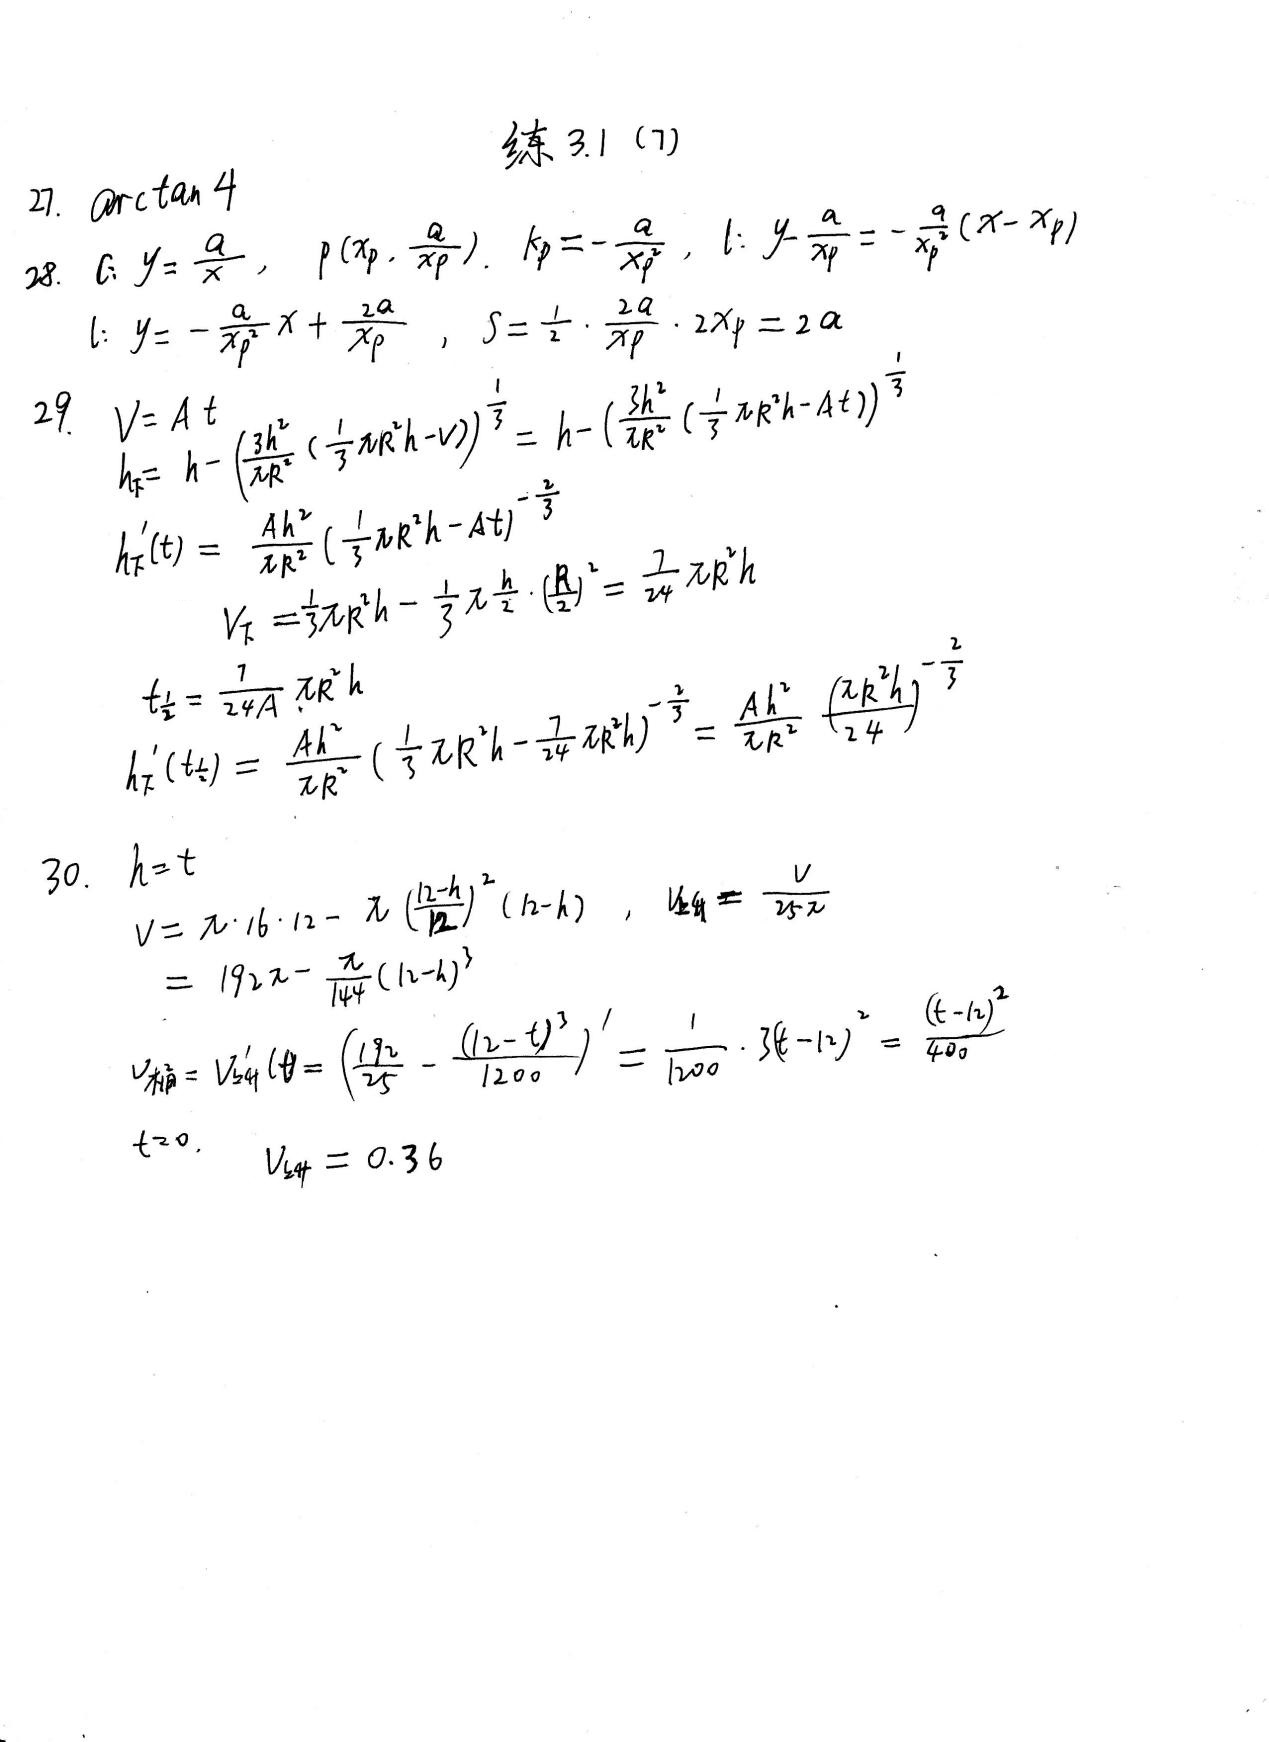 练 3.1 (7)
27. arctan 4
28. C: y = a/x , P(xp, a/xp). kp = -a/xp², l: y - a/xp = -a/xp² (x - xp)
l: y = -a/xp² x + 2a/xp , S = 1/2 · 2a/xp · 2xp = 2a
29. V = At
h下 = h - (3h²/πR² (1/3 πR²h - V))^(1/3) = h - (3h²/πR² (1/3 πR²h - At))^(1/3)
h下'(t) = Ah²/πR² (1/3 πR²h - At)^(-2/3)
V下 = 1/3 πR²h - 1/3 π h/2 · (R/2)² = 7/24 πR²h
t½ = 7/24A πR²h
h下'(t½) = Ah²/πR² (1/3 πR²h - 7/24 πR²h)^(-2/3) = Ah²/πR² (πR²h/24)^(-2/3)
30. h = t
V = π·16·12 - π ((12-h)/12)² (12-h) , = V/25π
= 192π - π/144 (12-h)³
V桶 = '(t) = (192/25 - (12-t)³/1200)' = 1/1200 · 3(t-12)² = (t-12)²/400
t=0. V = 0.36